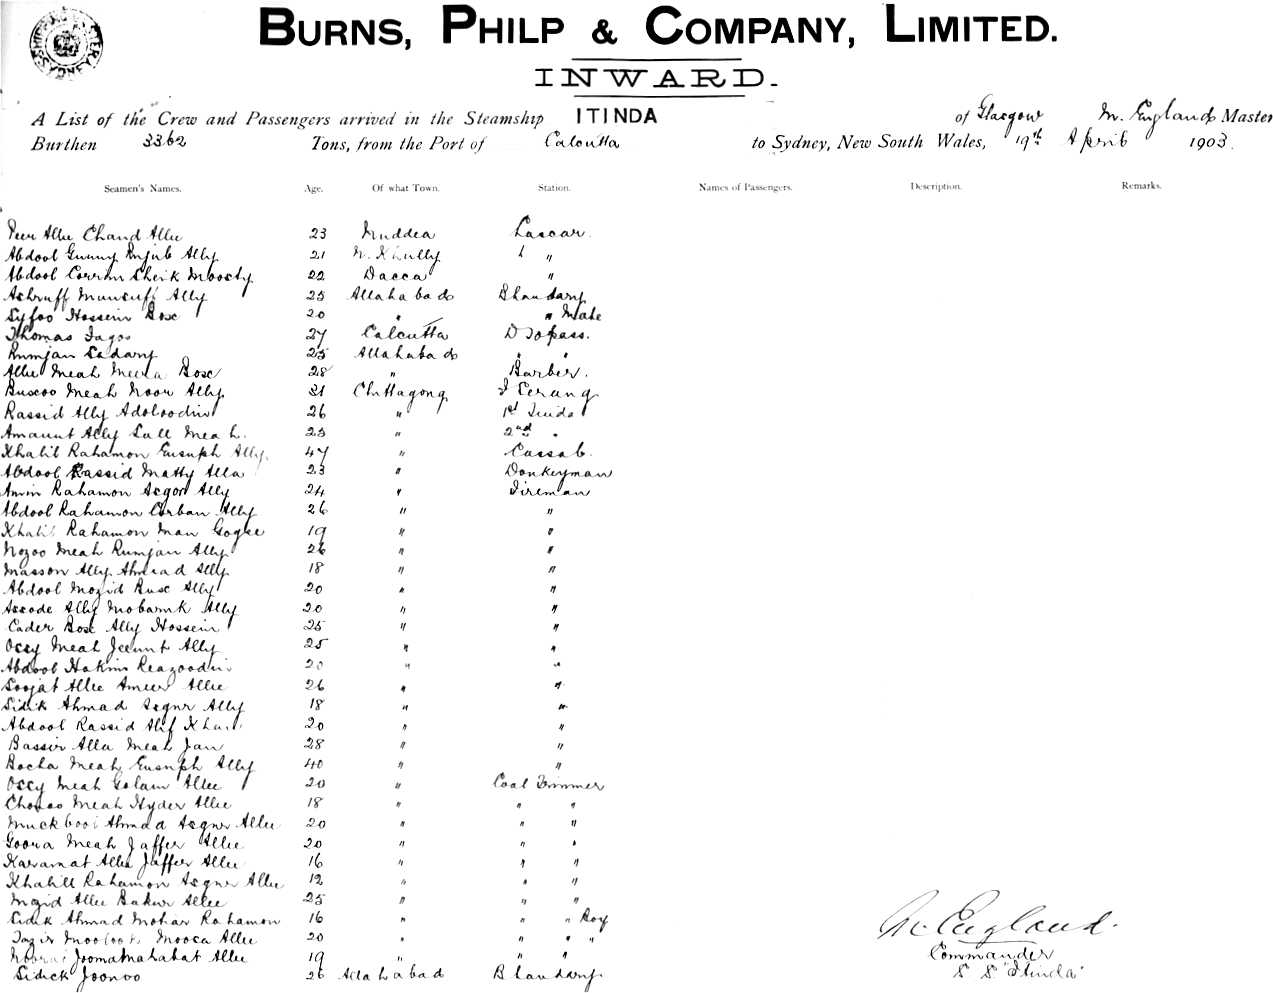 BURNS, PHILP & COMPANY, LIMITED.
INWARD.
A List of the Crew and Passengers arrived in the Steamship ITINDA of Glasgow M. England Master
Burthen 3362 Tons, from the Port of Calcutta to Sydney, New South Wales, 19th April 1903.
Seamen's Names. Age. Of what Town. Station. Names of Passengers. Description. Remarks.
Allie Chand Allie 23 Muddea Lascar.
Abdool Gunny Ally 21 "
Abdool Sheik Moosty 22 Dacca "
Ashruff Munsuff Ally 25 Allahabad Bhandary
Syfoo Hossein Box 20 " " Mate
Thomas 27 Calcutta Topass.
Rumjan Sadary 25 Allahabad " "
Allie Meah Box 28 " Barber.
Buscoo Meah Noor Ally 31 Chittagong Serang
Rassid Ally Adoloodin 26 " 1st Tindal
Ally Lall Meah. 25 " 2nd "
Khalil Rahamon Eusuph Ally. 47 " Cassab.
Abdool Rassid Matty Alla 23 " Donkeyman
Amin Rahamon Asgor Ally 24 " Fireman
Abdool Rahamon Corban Ally 26 " "
Khalil Rahamon Man Gogee 19 " "
Nozoo Meah Rumjan Ally 26 " "
Masson Ally Ahmad Ally 18 " "
Abdool Mozid Buse Ally 20 " "
Assode Ally Mobaruk Ally 20 " "
Cader Box Ally Hossein 25 " "
Occy Meah Ally 25 " "
Abdool Hakim Reazoodin 20 " "
Soojat Allie Ameer Allie 26 " "
Sidik Ahmad Asgur Ally 18 " "
Abdool Rassid Alif Khan 20 " "
Bassir Alla Meah Jan 28 " "
Bacha Meah Eusuph Ally 40 " "
Occy Meah Golam Allie 20 " Coal Trimmer
Meah Hyder Allie 18 " " "
Ahmad Asgur Allie 20 " " "
Goora Meah Jaffer Allie 20 " " "
Karamat Allie Jaffer Allie 16 " " "
Khalill Rahamon Asgur Allie 12 " " "
Mozid Allie Bakur Allie 25 " " "
Sidik Ahmad Mohar Rahamon 16 " " " Boy
Mooca Allie 20 " " " "
Allie 19 " " "
Sidick Joonoo 26 Allahabad Bhandary.
M. England.
Commander
S S "Itinda"